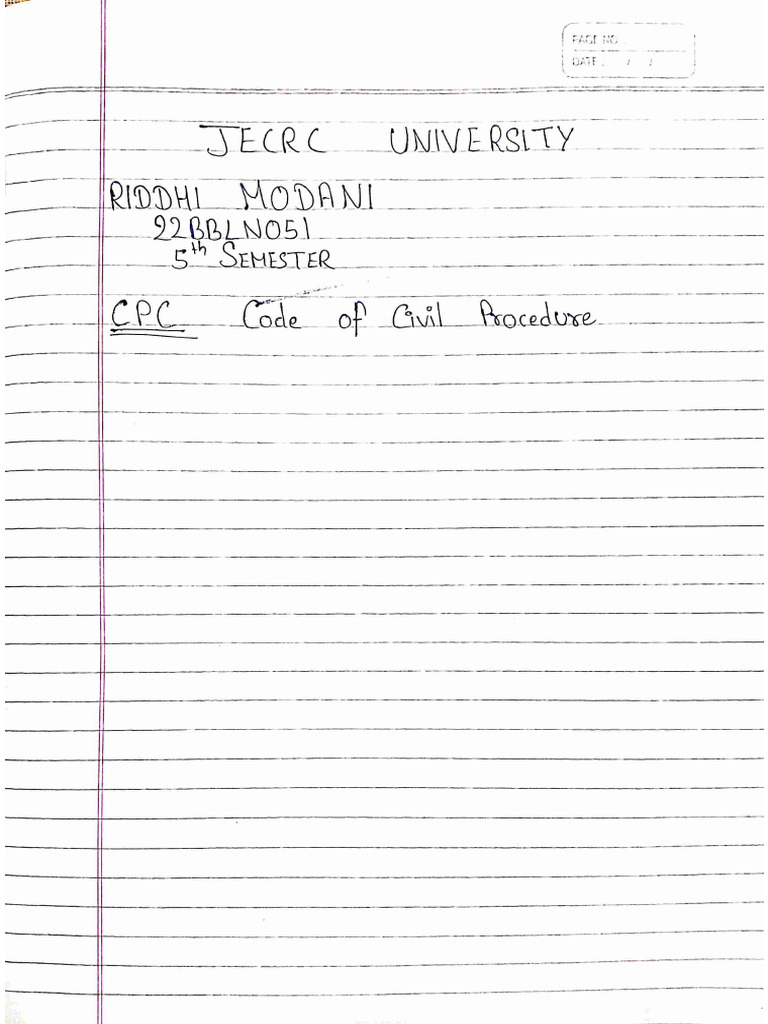 PAGE NO
DATE : / /
JECRC UNIVERSITY
RIDDHI MODANI
22BBLN051
5th SEMESTER
CPC Code of Civil Procedure